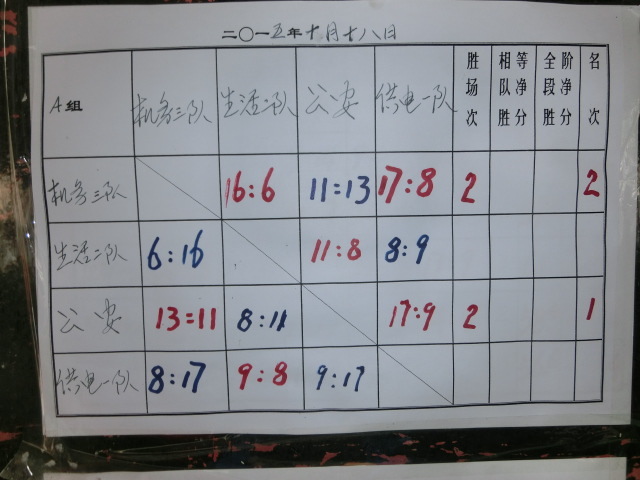 二〇一五年十月十八日
A组 机务三队 生活二队 公安 供电一队 胜场次 相等队净胜分 全阶段净胜分 名次
机务三队 16:6 11=13 17:8 2 2
生活二队 6:16 11:8 8:9
公安 13=11 8:11 17:9 2 1
供电一队 8:17 9:8 9:17